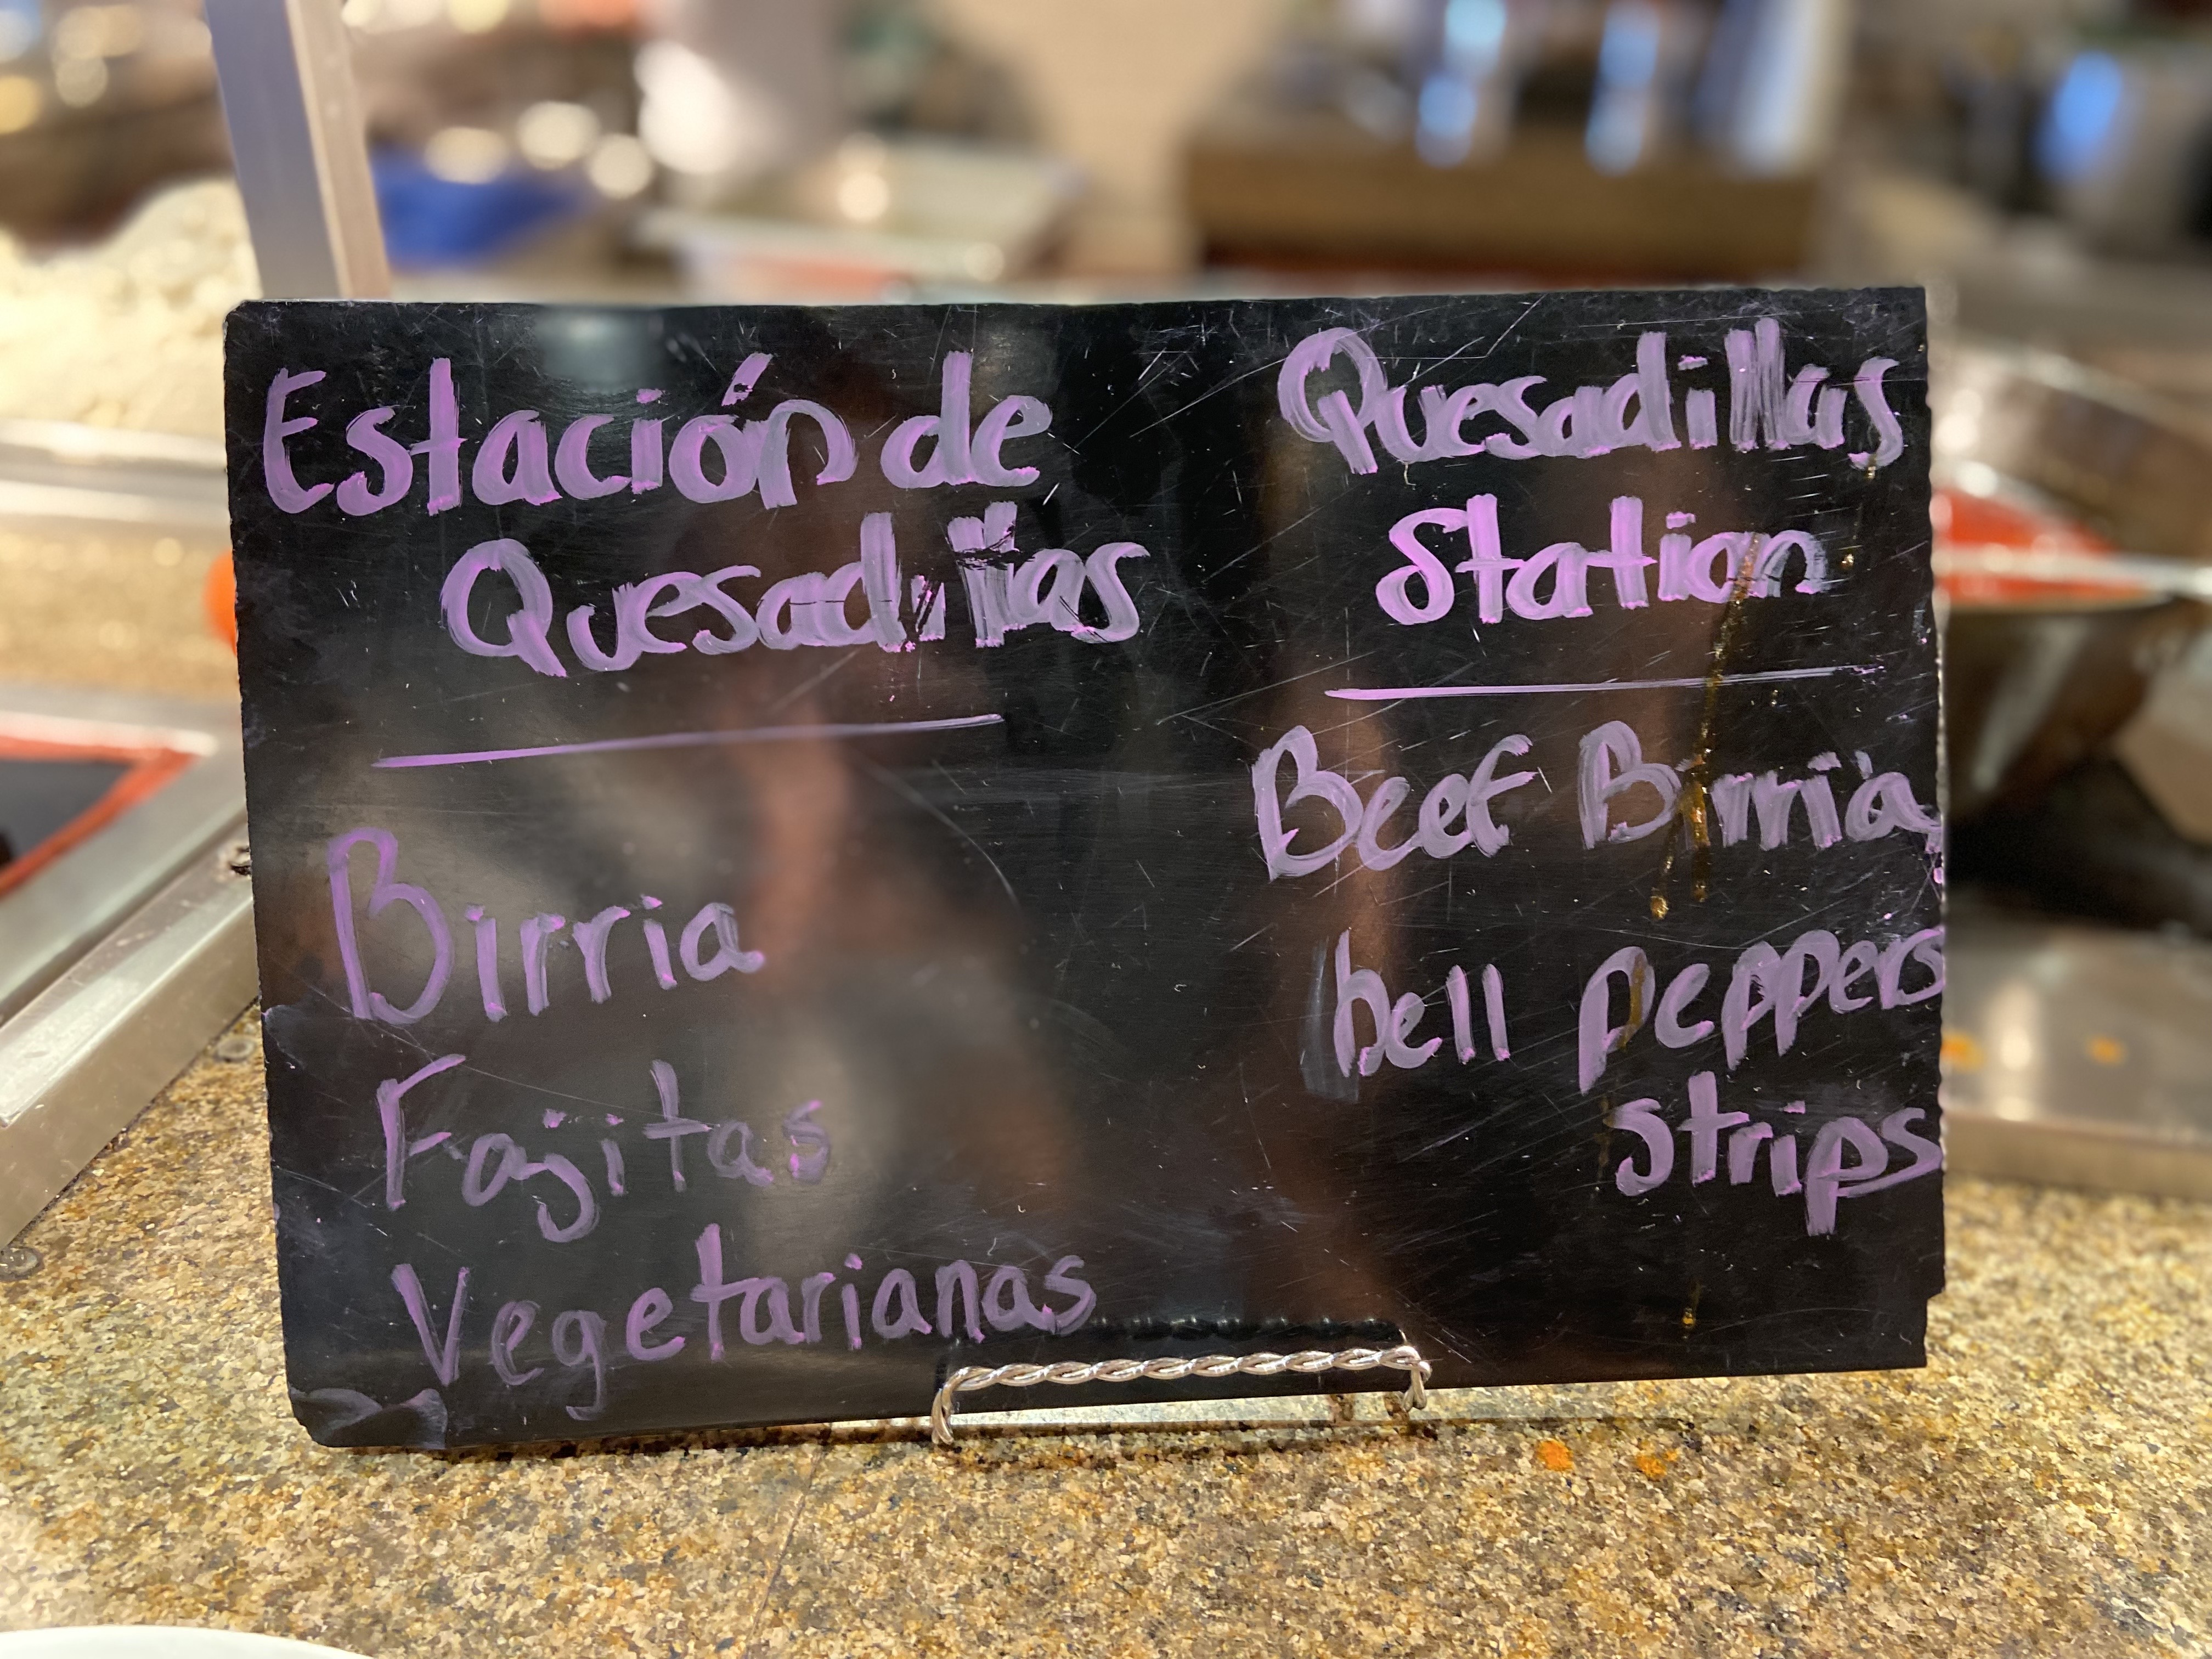 Estación de
Quesadillas
Birria
Fajitas
Vegetarianas
Quesadillas
Station
Beef Birria
bell peppers
strips